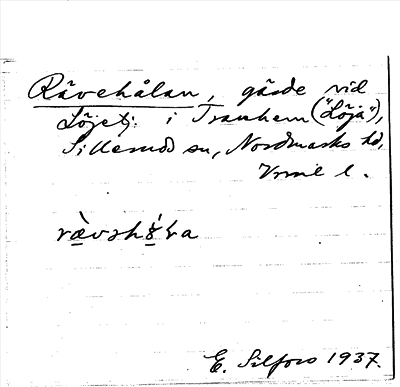 Rävehålan, gärde vid
Löjetj. i Tranhem ("Löjå"),
Sillerud sn, Nordmarks hd,
Vrml l.
E. Silfors 1937.